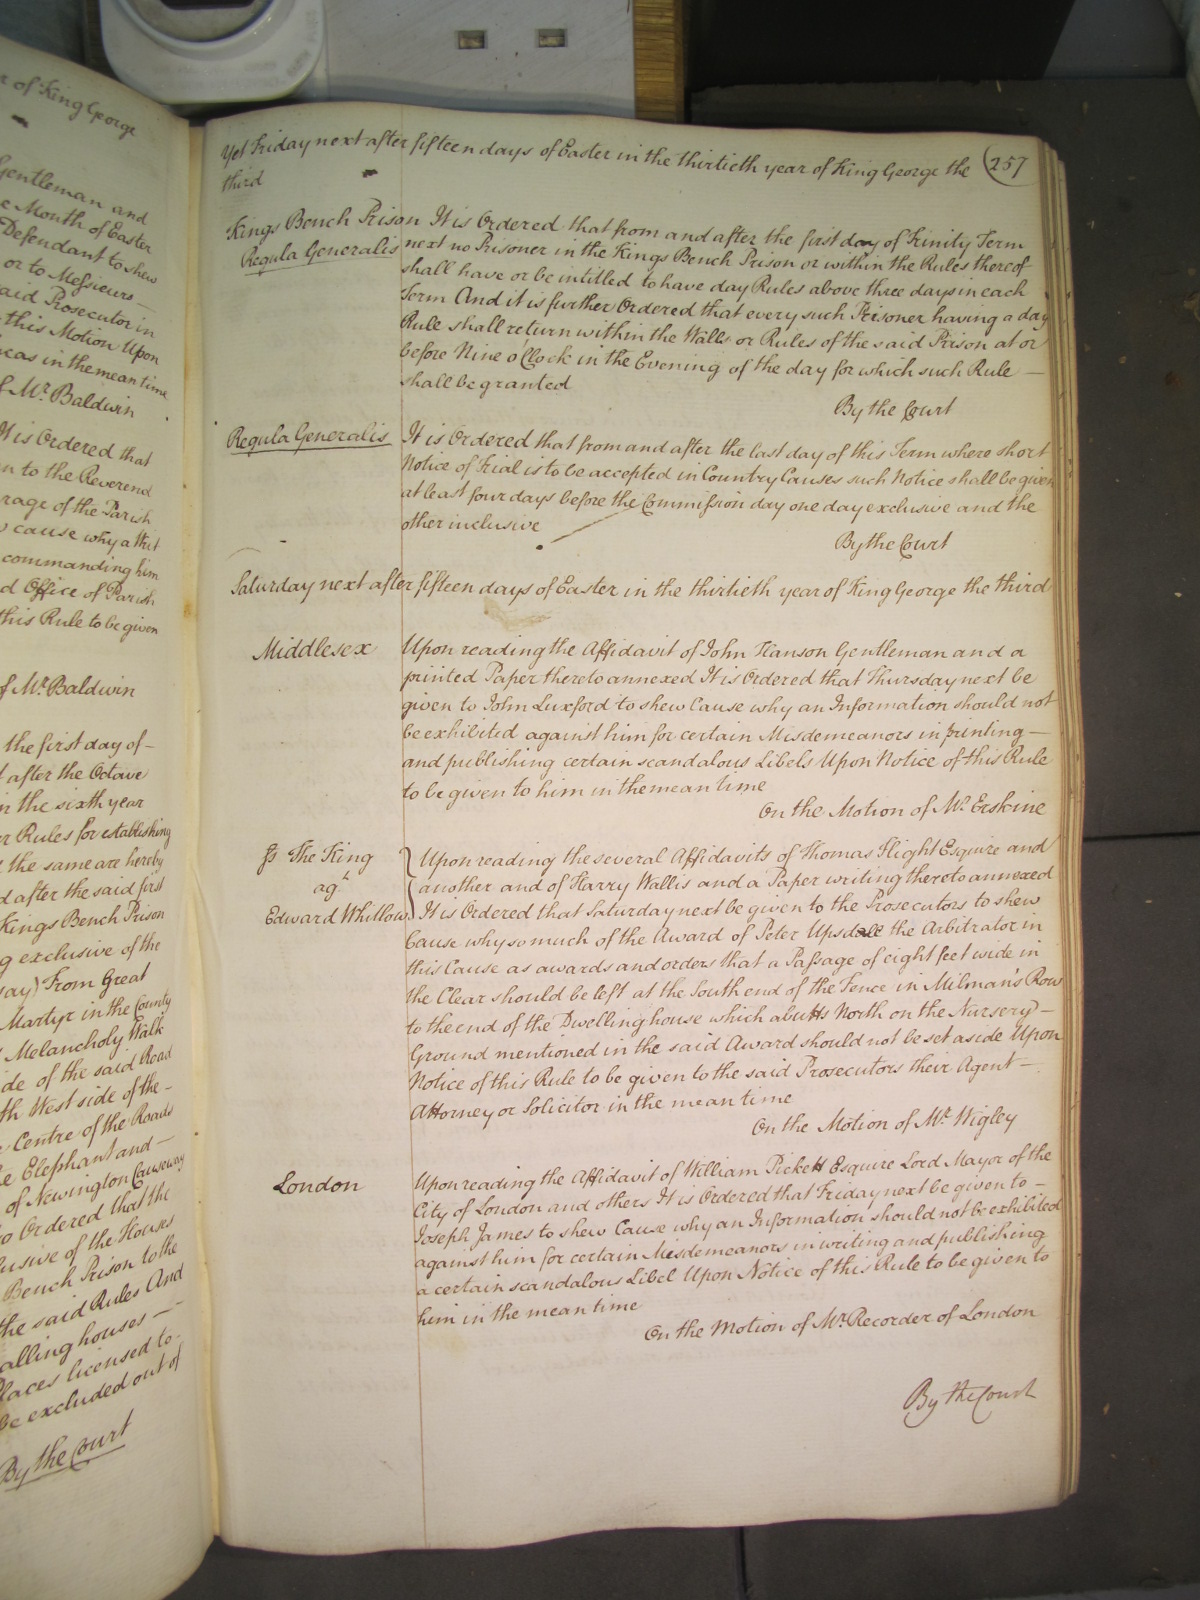 r of King George
Gentleman and
e Month of Easter
Defendant to shew
or to Messieurs —
said Prosecutor in
this Motion Upon
in the mean time
of Mr. Baldwin
It is Ordered that
n to the Reverend
of the Parish
cause why a Writ
commanding him
d Office of Parish
this Rule to be given
of Mr. Baldwin
the first day of —
after the Octave
in the sixth year
Rules for establishing
the same are hereby
d after the said first
Kings Bench Prison
exclusive of the
From Great
Martyr in the County
Melancholy Walk
ide of the said Road
th West side of the —
Centre of the Roads
Elephant and —
of Newington Causeway
Ordered that the
usive of the Houses
Bench Prison to the
the said Rules And
alling houses —
Places licensed to
be excluded out of
By the Court
257
Yet Friday next after fifteen days of Easter in the thirtieth year of King George the
third
Kings Bench Prison It is Ordered that from and after the first day of Trinity Term
Regula Generalis next no Prisoner in the Kings Bench Prison or within the Rules thereof
shall have or be intitled to have day Rules above three days in each
Term And it is further Ordered that every such Prisoner having a day
Rule shall return within the Walls or Rules of the said Prison at or
before Nine o'Clock in the Evening of the day for which such Rule —
shall be granted
By the Court
Regula Generalis It is Ordered that from and after the last day of this Term where short
Notice of Trial is to be accepted in Country Causes such Notice shall be given
at least four days before the Commission day one day exclusive and the
other inclusive
By the Court
Saturday next after fifteen days of Easter in the thirtieth year of King George the third
Middlesex Upon reading the Affidavit of John Hanson Gentleman and a
printed Paper thereto annexed It is Ordered that Thursday next be
given to John Luxford to shew Cause why an Information should not
be exhibited against him for certain Misdemeanors in printing —
and publishing certain scandalous Libels Upon Notice of this Rule
to be given to him in the mean time
On the Motion of Mr. Erskine
The King Upon reading the several Affidavits of Thomas Flight Esquire and
agt. another and of Harry Wallis and a Paper writing thereto annexed
Edward Whitlow It is Ordered that Saturday next be given to the Prosecutors to shew
Cause why so much of the Award of Peter Upsdale the Arbitrator in
this Cause as awards and orders that a Passage of eight feet wide in
the Clear should be left at the South end of the Fence in Milman's Row
to the end of the Dwelling house which abutts North on the Nursery —
Ground mentioned in the said Award should not be set aside Upon
Notice of this Rule to be given to the said Prosecutors their Agent —
Attorney or Solicitor in the mean time
On the Motion of Mr. Wigley
London Upon reading the Affidavit of William Pickett Esquire Lord Mayor of the
City of London and others It is Ordered that Friday next be given to —
Joseph James to shew Cause why an Information should not be exhibited
against him for certain Misdemeanors in writing and publishing
a certain scandalous Libel Upon Notice of this Rule to be given to
him in the mean time
On the Motion of Mr. Recorder of London
By the Court